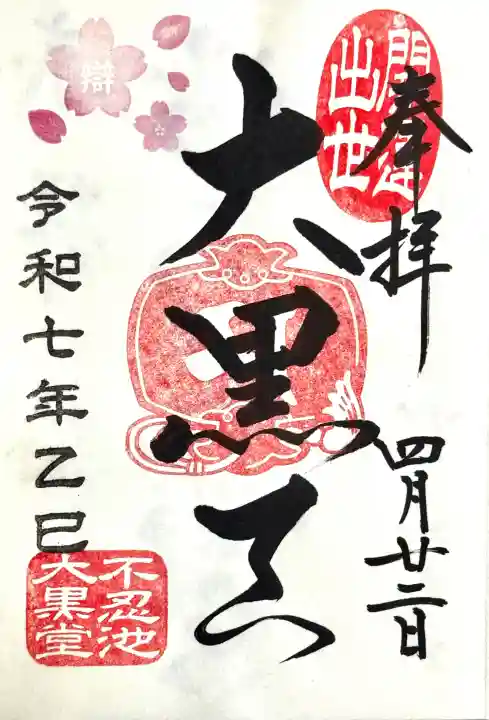 奉拝
四月廿二日
開運
出世
大黒天
辯
令和七年乙巳
不忍池
大黒堂